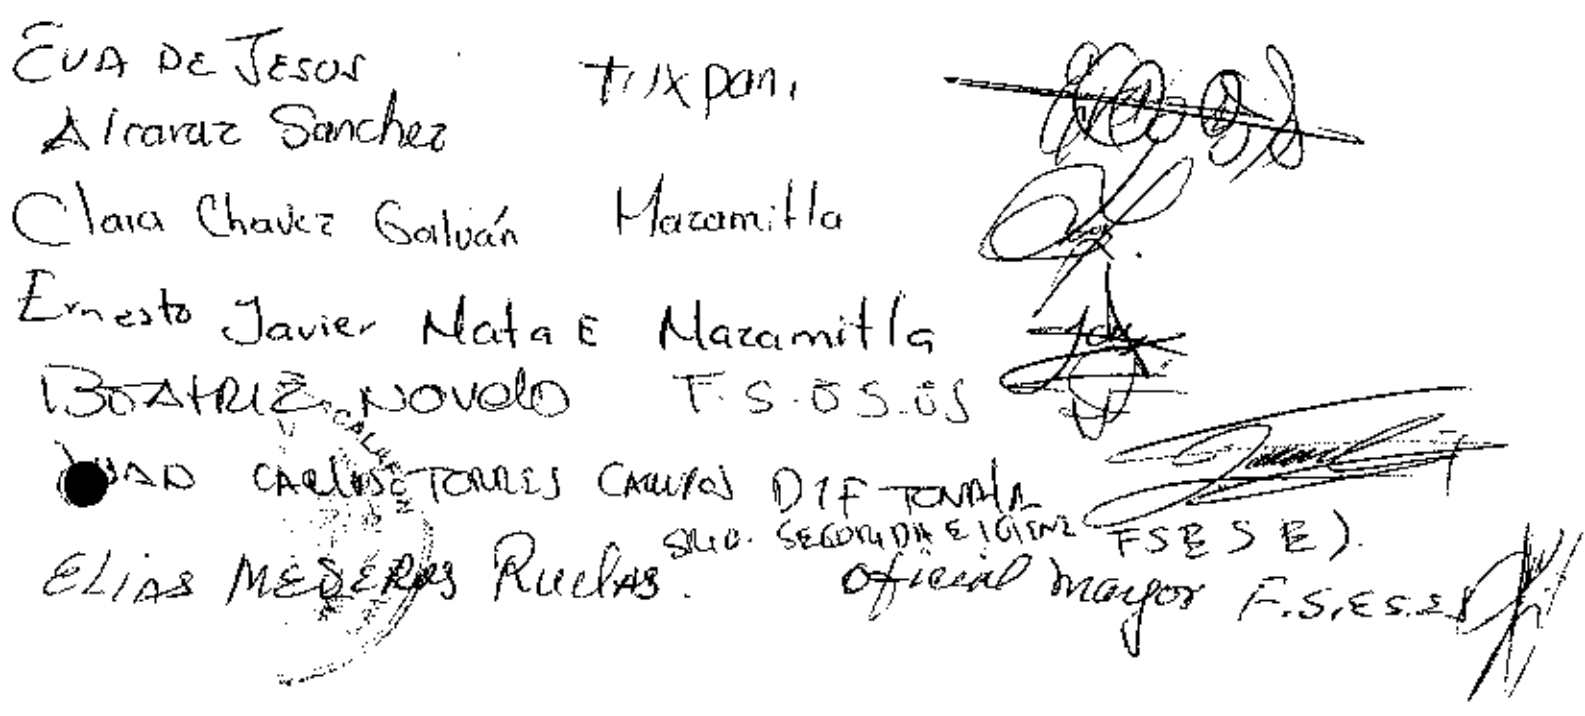 EVA DE JESUS Tuxpan.
Alcaraz Sanchez
Clara Chavez Galván Mazamitla
Ernesto Javier Mata E Mazamitla
BEATRIZ NOVELO F.S.E.S.E.J
JUAN CARLOS TORRES CAMPOS DIF TONALA
SRIO. SEGURIDA E IGIENE FSESEJ.
ELIAS MEDEROS Ruelas. Oficial mayor F.S.E.S.E.J